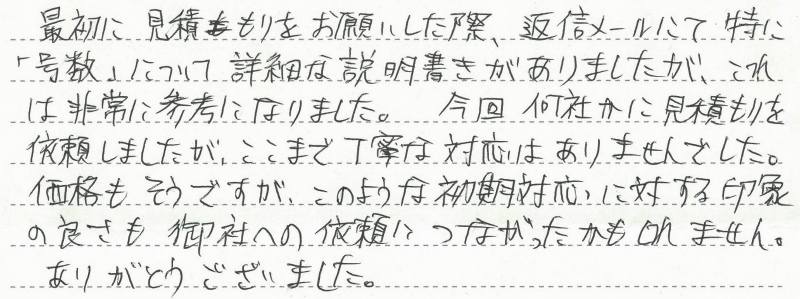 最初に見積もりをお願いした際、返信メールにて特に
「号数」について詳細な説明書きがありましたが、これ
は非常に参考になりました。 今回何社かに見積もりを
依頼しましたが、ここまで丁寧な対応はありませんでした。
価格もそうですが、このような初期対応に対する印象
の良さも御社への依頼につながったかもしれません。
ありがとうございました。